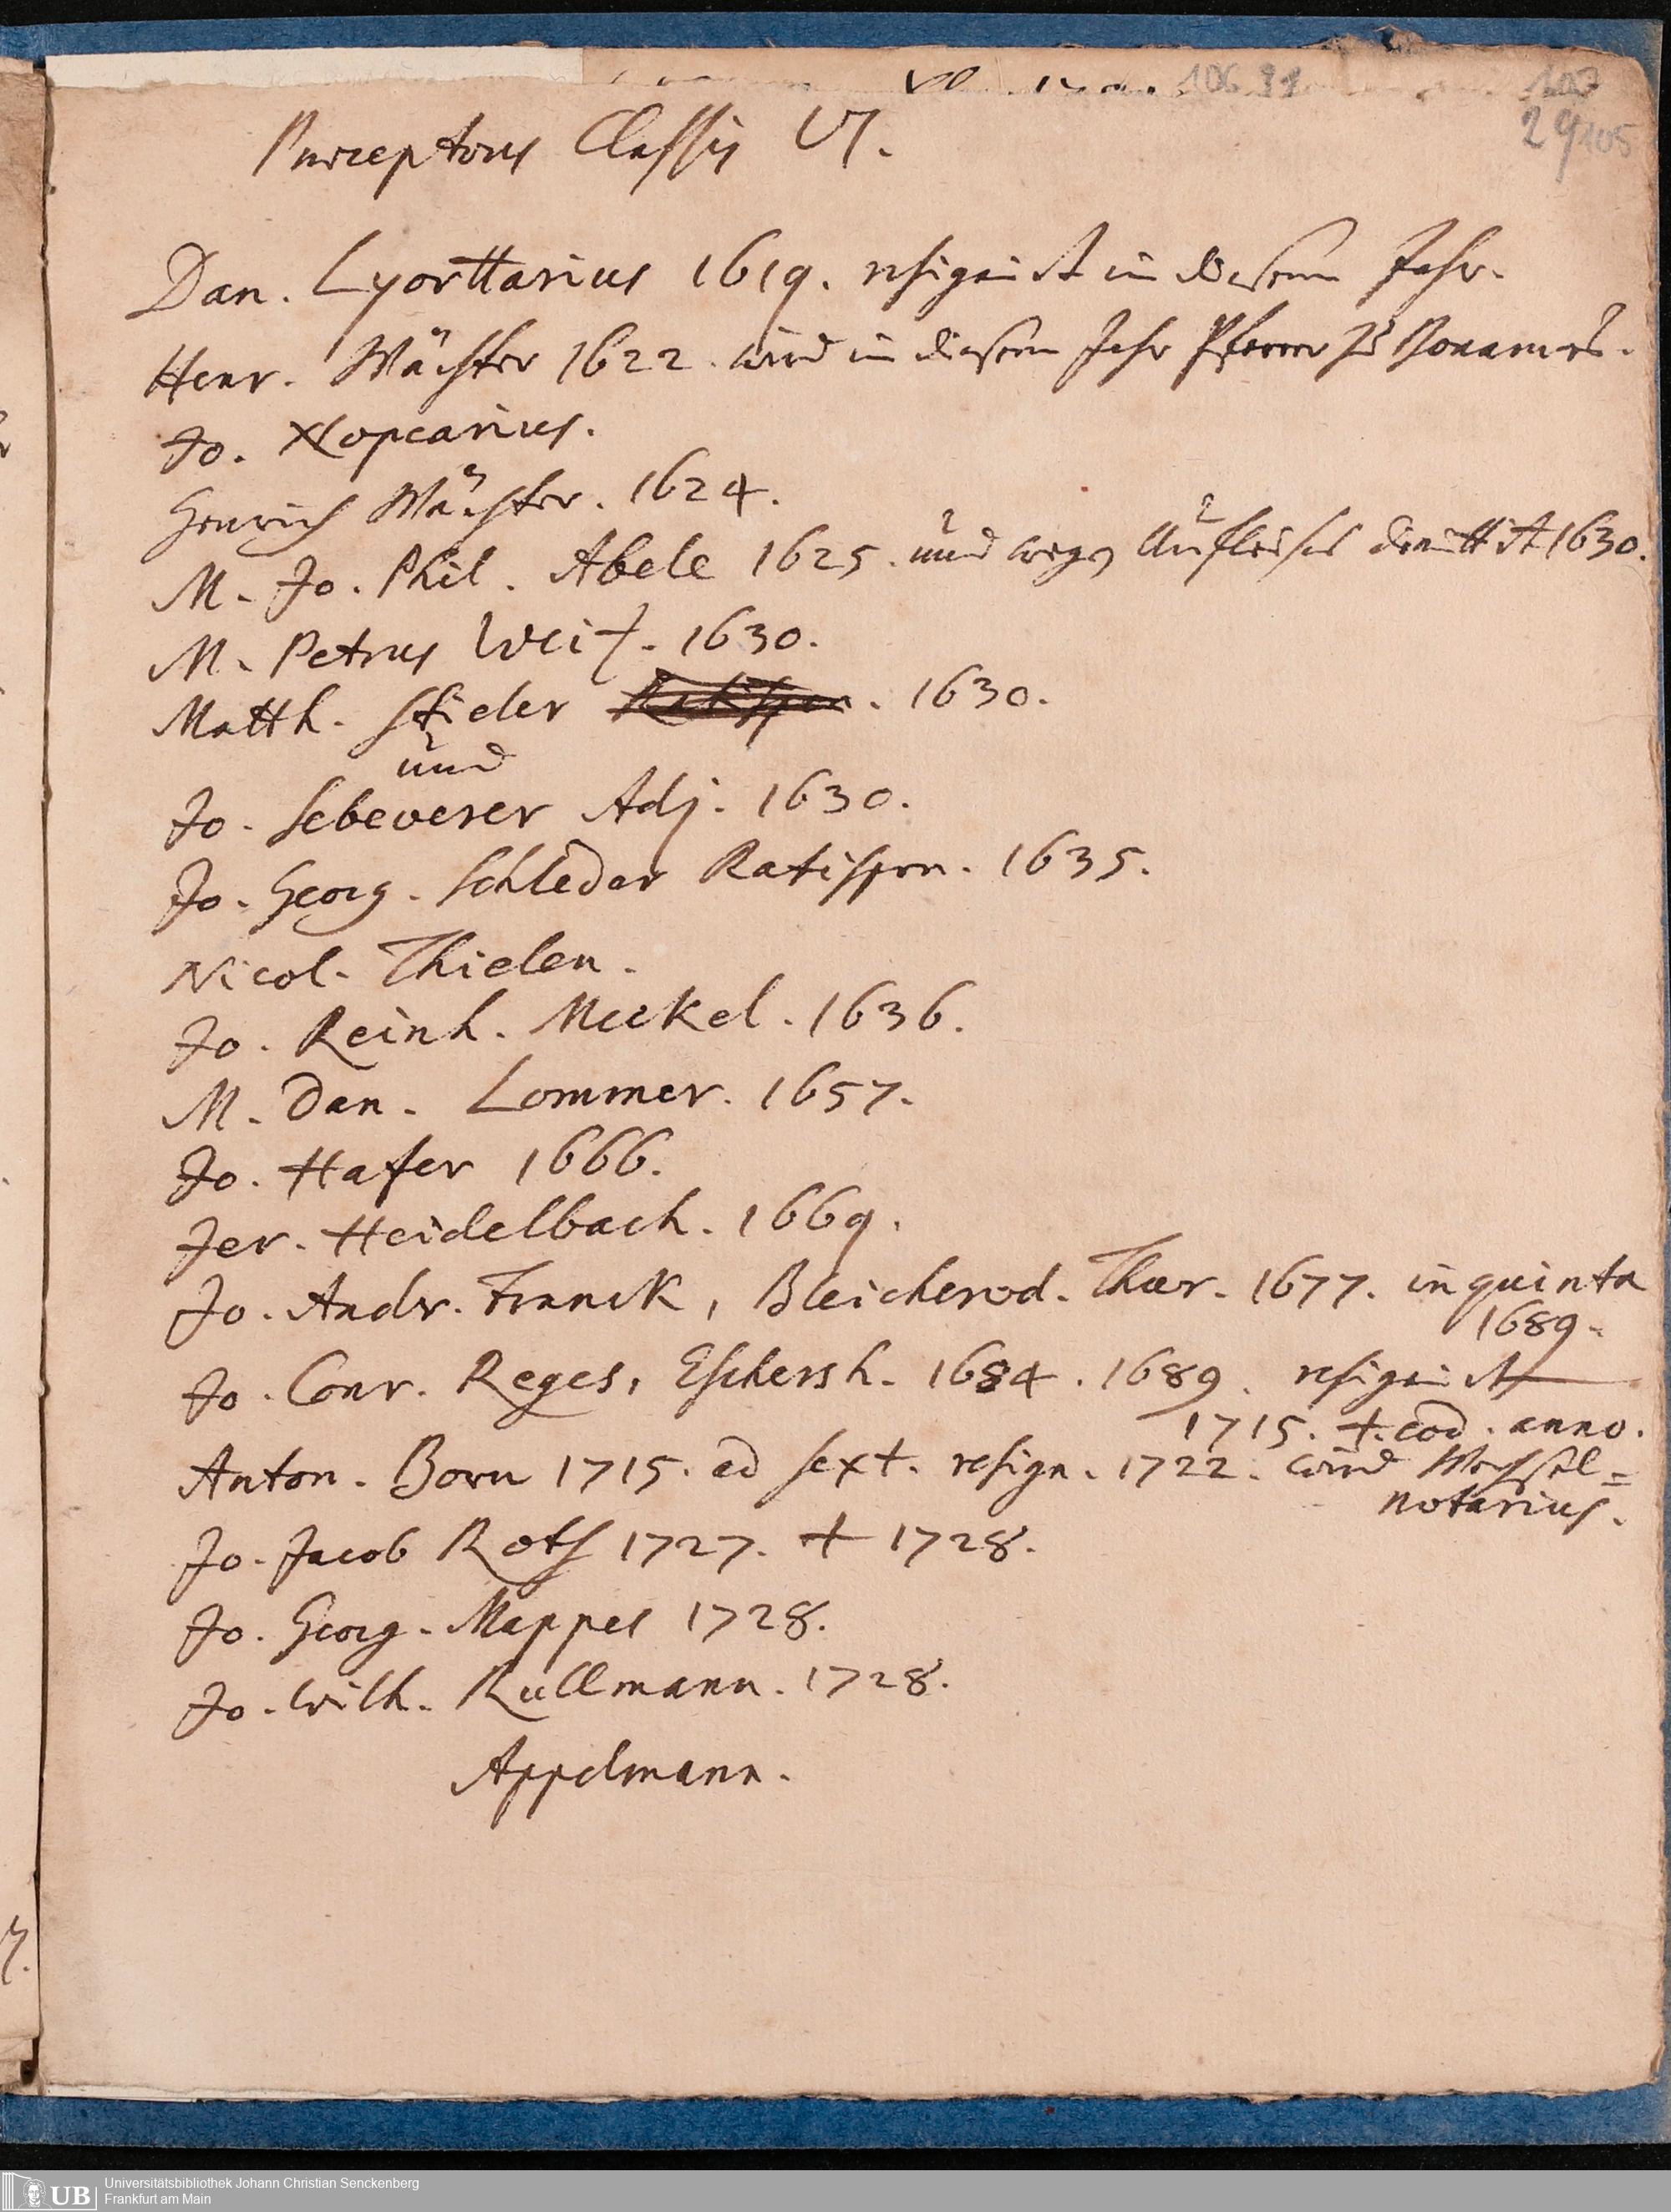 107
29 105
Praeceptores Classis VI.
Dan. Lyorttarius 1619. resignirt in diesem Jahr.
Henr. Wächter 1622. wird in diesem Jahr Pfarrer zu Bonames.
Jo.
Henrich Wächter. 1624.
M. Jo. Phil. Abele 1625. und wegen Unfleises dimittirt 1630.
M. Petrus Weis. 1630.
Matth. Stider Ratispon. 1630.
und
Jo. Sebeverer Adj. 1630.
Jo. Georg. Schleder Ratispon. 1635.
Nicol. Thielen.
Jo. Reinh. Meckel. 1636.
M. Dan. Lommer. 1657.
Jo. Hafer 1666.
Jer. Heidelbach. 1669.
Jo. Andr. Franck, Bleicherod. Thur. 1677. in quinta
1689.
Jo. Conr. Reges, Eschersh. 1684. 1689. resignirt
1715. + eod. anno.
Anton. Born 1715. ad sext. resign. 1722. wird Wechsel=
notarius.
Jo. Jacob Roth 1727. + 1728.
Jo. Georg. Mappes 1728.
Jo. Wilh. Rullmann. 1728.
Appelmann.
UB
Universitätsbibliothek Johann Christian Senckenberg
Frankfurt am Main